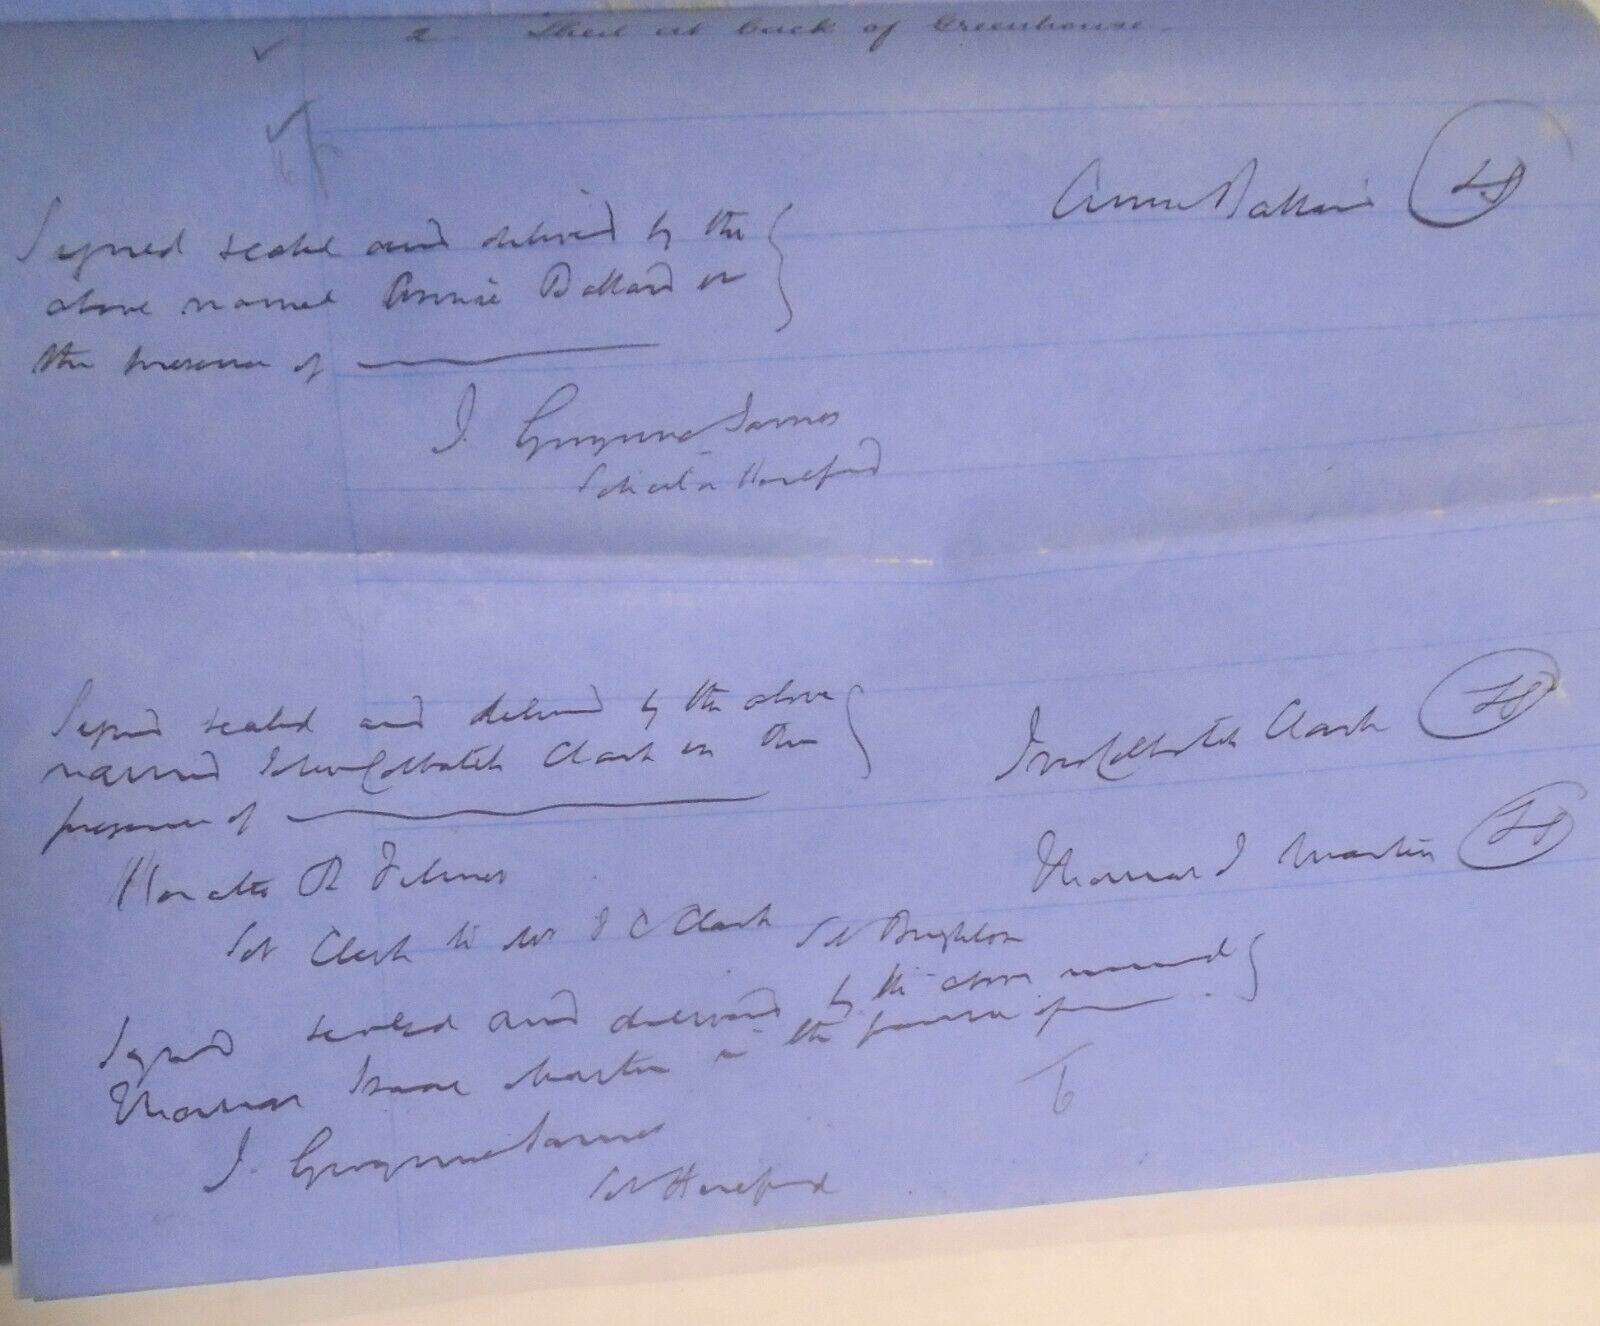 2. Shed at back of Greenhouse.
Annie Ballard LS
Signed sealed and delivered by the
above named Annie Ballard in
the presence of
J. Gwynne James
Solicitor Hereford
Signed sealed and delivered by the above
named John Colbatch Clark in the
presence of
Jno Colbatch Clark LS
Thomas I Martin LS
Horatio R Filmer
Sol Clerk to Mr J C Clark Sol Brighton
Signed sealed and delivered by the above named
Thomas Isaac Martin in the presence of
J. Gwynne James
Sol Hereford